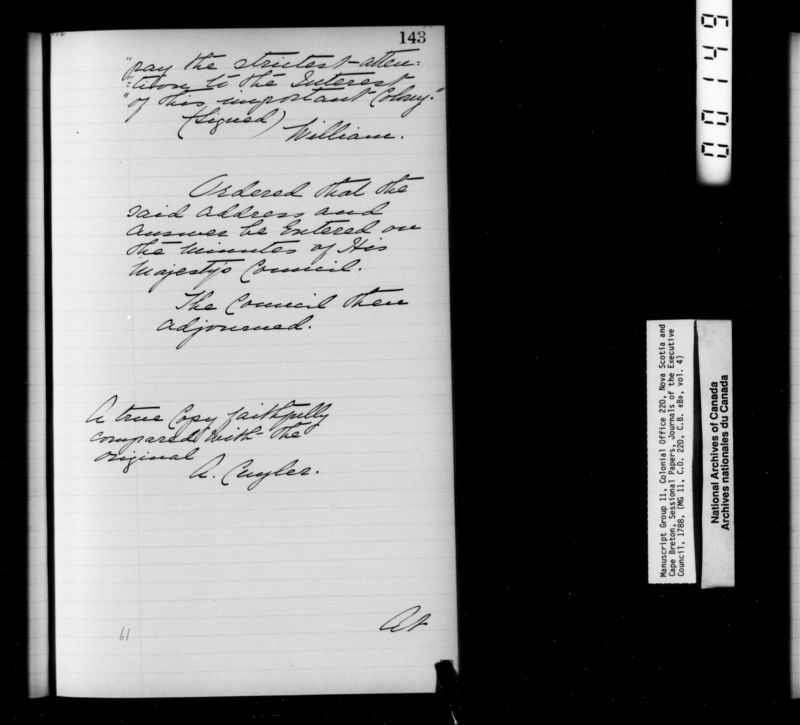 143
"pay the strictest atten:
":tion to the Interest
"of this important Colony."
(Signed)
William.
Ordered that the
said address and
answer be Entered on
the minutes of His
Majesty's Council.
The Council then
adjourned.
A true Copy faithfully
compared with the
original
A. Cuyler.
At
61
00149
Manuscript Group 11, Colonial Office 220, Nova Scotia and
Cape Breton, Sessional Papers, Journals of the Executive
Council, 1788, (MG 11, C.O. 220, C.B. «B», vol. 4)
National Archives of Canada
Archives nationales du Canada